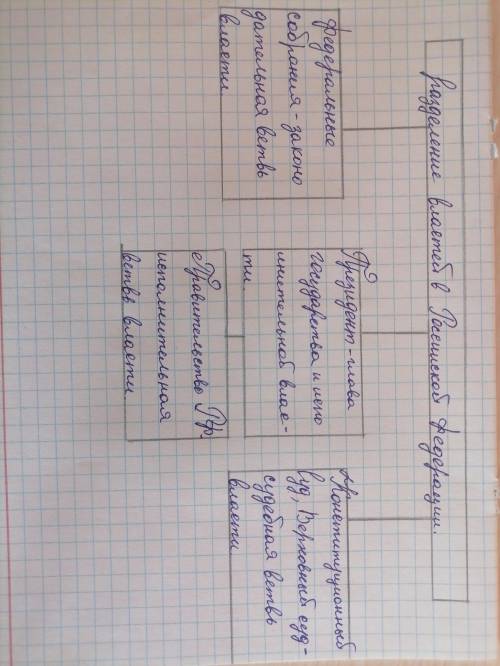 Разделение властей в Росийской Федерации.
Федеральные
собрания - законо
дательная ветвь
власти.
Президент - глава
государства и испо
лнительной влас-
ти
Правительство РФ.
исполнительная
ветвь власти.
Конституционный
суд, Верховный суд-
судебная ветвь
власти